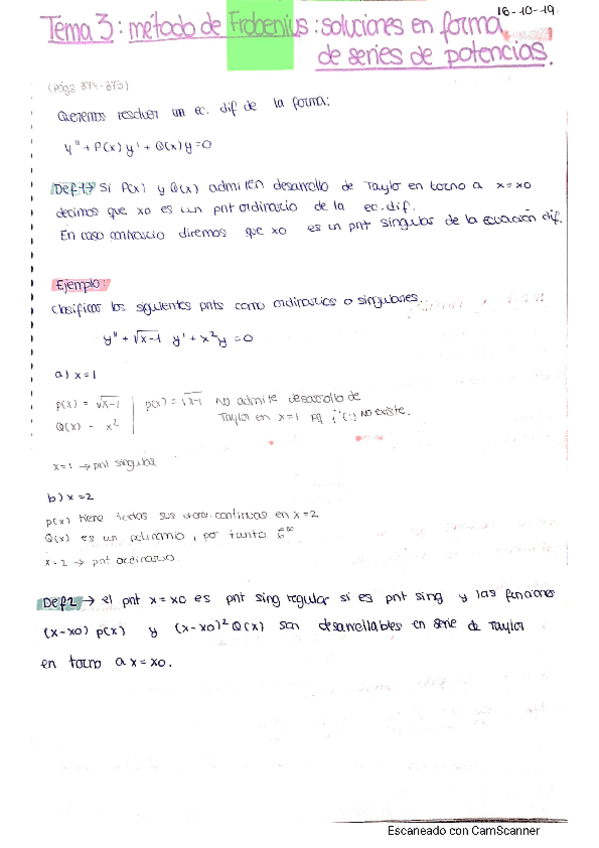 16-10-19
Tema 3: método de Frobenius: soluciones en forma
de series de potencias.
(Págs 374-375)
Queremos resolver un ec. dif de la forma:
y" + P(x) y' + Q(x) y = 0
Def 1 → Si P(x) y Q(x) admiten desarrollo de Taylor en torno a x = x0
decimos que x0 es un pnt ordinario de la ec. dif.
En caso contrario diremos que x0 es un pnt singular de la ecuación dif.
Ejemplo:
Clasificar los siguientes pnts como ordinarios o singulares.
y" + √x-1 y' + x²y = 0
a) x = 1
p(x) = √x-1 | p(x) = √x-1 no admite desarrollo de
Q(x) = x² | Taylor en x=1 pq no existe.
x=1 → pnt singular
b) x = 2
p(x) tiene todas sus continuas en x=2
Q(x) es un polinomio, por tanto C∞
x=2 → pnt ordinario
Def 2 → el pnt x = x0 es pnt sing regular si es pnt sing y las funciones
(x-x0) p(x) y (x-x0)² Q(x) son desarrollables en serie de Taylor
en torno a x = x0.
Escaneado con CamScanner